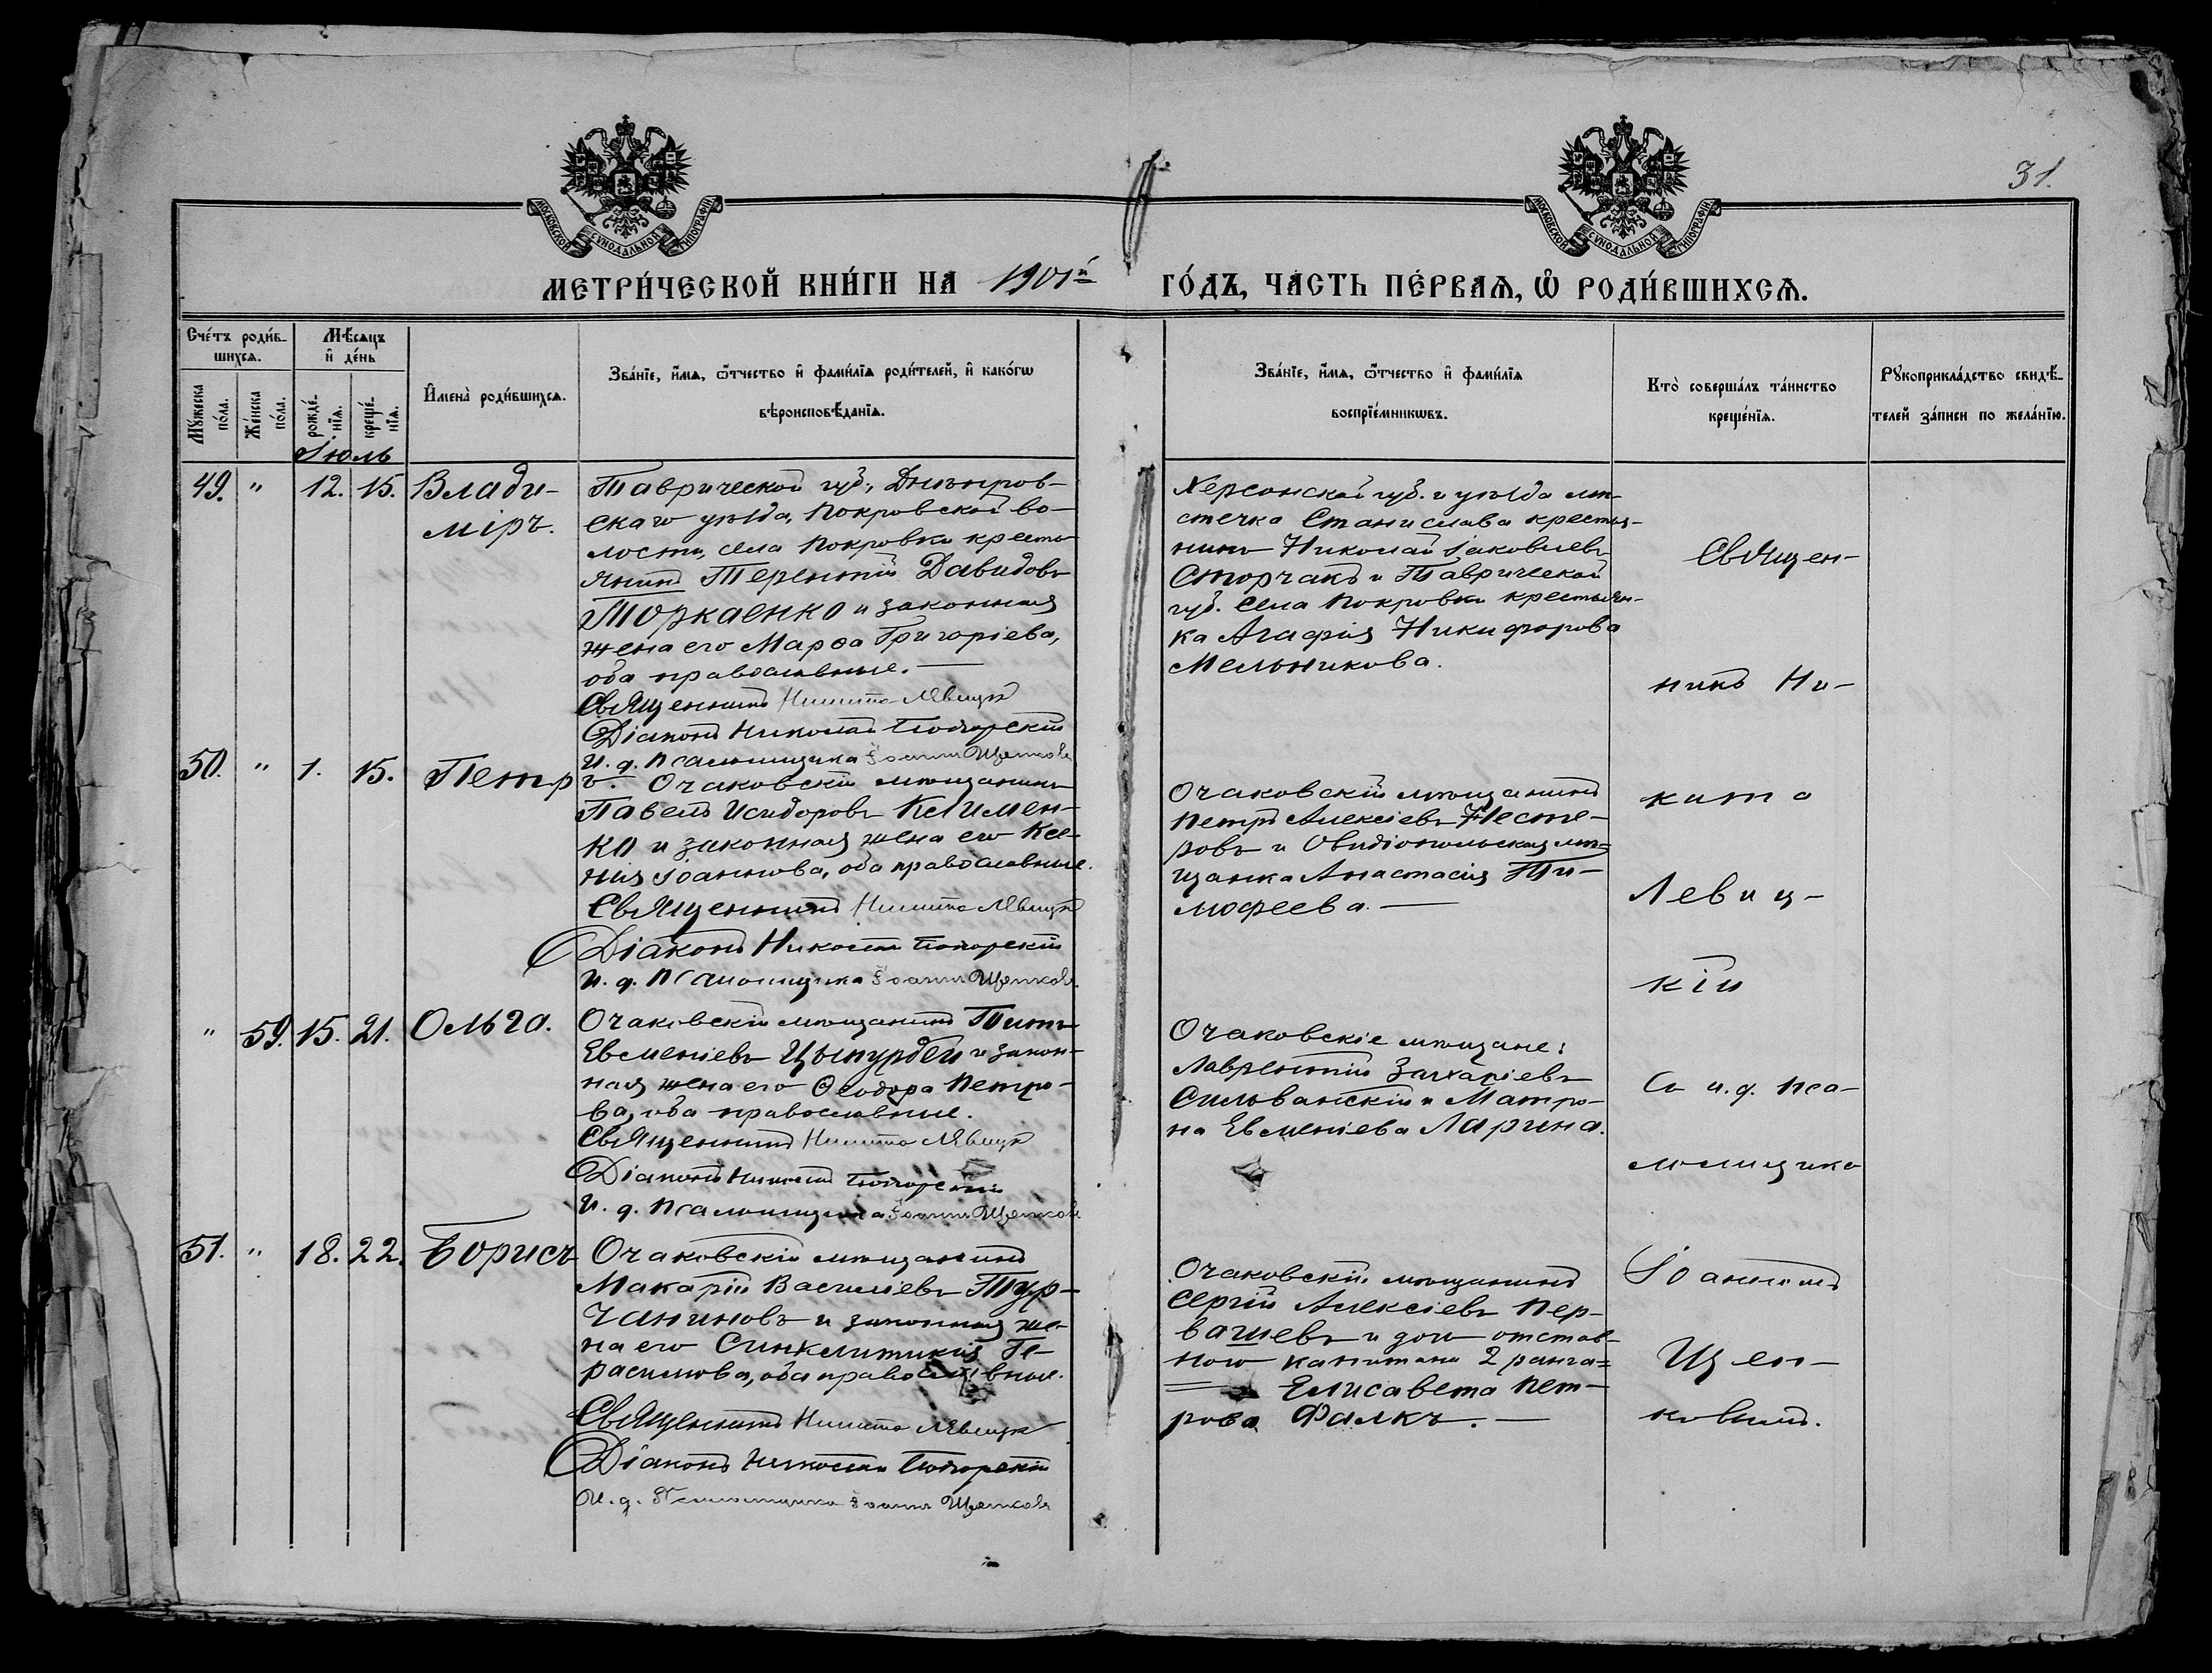 31.
МОСКОВСКОЙ СУНОДАЛЬНОЙ ТИПОГРАФІИ
МОСКОВСКОЙ СУНОДАЛЬНОЙ ТИПОГРАФІИ
МЕТРИ́ЧЕСКОЙ КНИ́ГИ НА 1901й ГО́ДЪ, ЧАСТЬ ПЕ́РВАѦ, Ѡ҆ РОДИ́ВШИХСѦ.
Сче́тъ роди́в-
шихсѧ.
Мꙋжеска
по́ла.
Же́нска
по́ла.
Мѣ́сѧцъ
и҆ де́нь
рожде́-
нїѧ.
креще́-
нїѧ.
И҆мена̀ роди́вшихсѧ.
Зва́нїе, и҆́мѧ, ѻ҆́тчество и҆ фами́лїѧ роди́телей, и҆ како́гѡ
вѣроисповѣ́данїѧ.
Зва́нїе, и҆́мѧ, ѻ҆́тчество и҆ фами́лїѧ
воспрїе́мникѡвъ.
Кто̀ соверша́лъ та́инство
креще́нїѧ.
Рꙋкоприкла́дство свидѣ́-
телей за́писи по жела́нїю.
Іюль
49. " 12. 15. Влади-
міръ.
Таврической губ., Днѣпров-
скаго уѣзда, Покровской во-
лости, села Покровки кресть-
янинъ Терентій Давидовъ
Торкаенко и законная
жена его Марѳа Григоріева,
оба православные.
Священникъ Никита Левицкій
Діаконъ Николай
И. д. Псаломщика Іоаннъ Щепковъ
Херсонской губ. и уѣзда мѣ-
стечка Станислава крестья-
нинъ Николай Іаковлевъ
Сторчакъ и Таврической
губ. села Покровки крестьян-
ка Агафія Никифорова
Мельникова.
50. " 1. 15. Петръ.
Очаковскій мѣщанинъ
Павелъ Исидоровъ Климен-
ко и законная жена его Ксе-
нія Іоаннова, оба православные.
Священникъ Никита Левицкій
Діаконъ Николай
И. д. Псаломщика Іоаннъ Щепковъ
Очаковскій мѣщанинъ
Петръ Алексіевъ Несте-
ровъ и Овидіопольская мѣ-
щанка Анастасія Ти-
мофеева.
" 59. 15. 21. Ольга.
Очаковскій мѣщанинъ Титъ
Евменіевъ Цыпурдеи и закон-
ная жена его Ѳеодора Петро-
ва, оба православные.
Священникъ Никита Левицкій
Діаконъ Николай
И. д. Псаломщика Іоаннъ Щепковъ
Очаковскіе мѣщане:
Лаврентій Захаріевъ
Сильванскій и Матро-
на Евменіева Ларина.
51. " 18. 22. Борисъ
Очаковскій мѣщанинъ
Макарій Василіевъ Тур-
чаниновъ и законная же-
на его Синклитикія Ге-
расимова, оба православные.
Священникъ Никита Левицкій
Діаконъ Николай
И. д. Псаломщика Іоаннъ Щепковъ
Очаковскій мѣщанинъ
Сергій Алексіевъ Пер-
вашевъ и дочь отстав-
ного капитана 2 ранга=
Елисавета Пет-
рова Фалкъ.
Священ-
никъ Ни-
кита
Левиц-
кій
Съ и. д. пса-
ломщика
Іоанномъ
Щеп-
ковымъ.